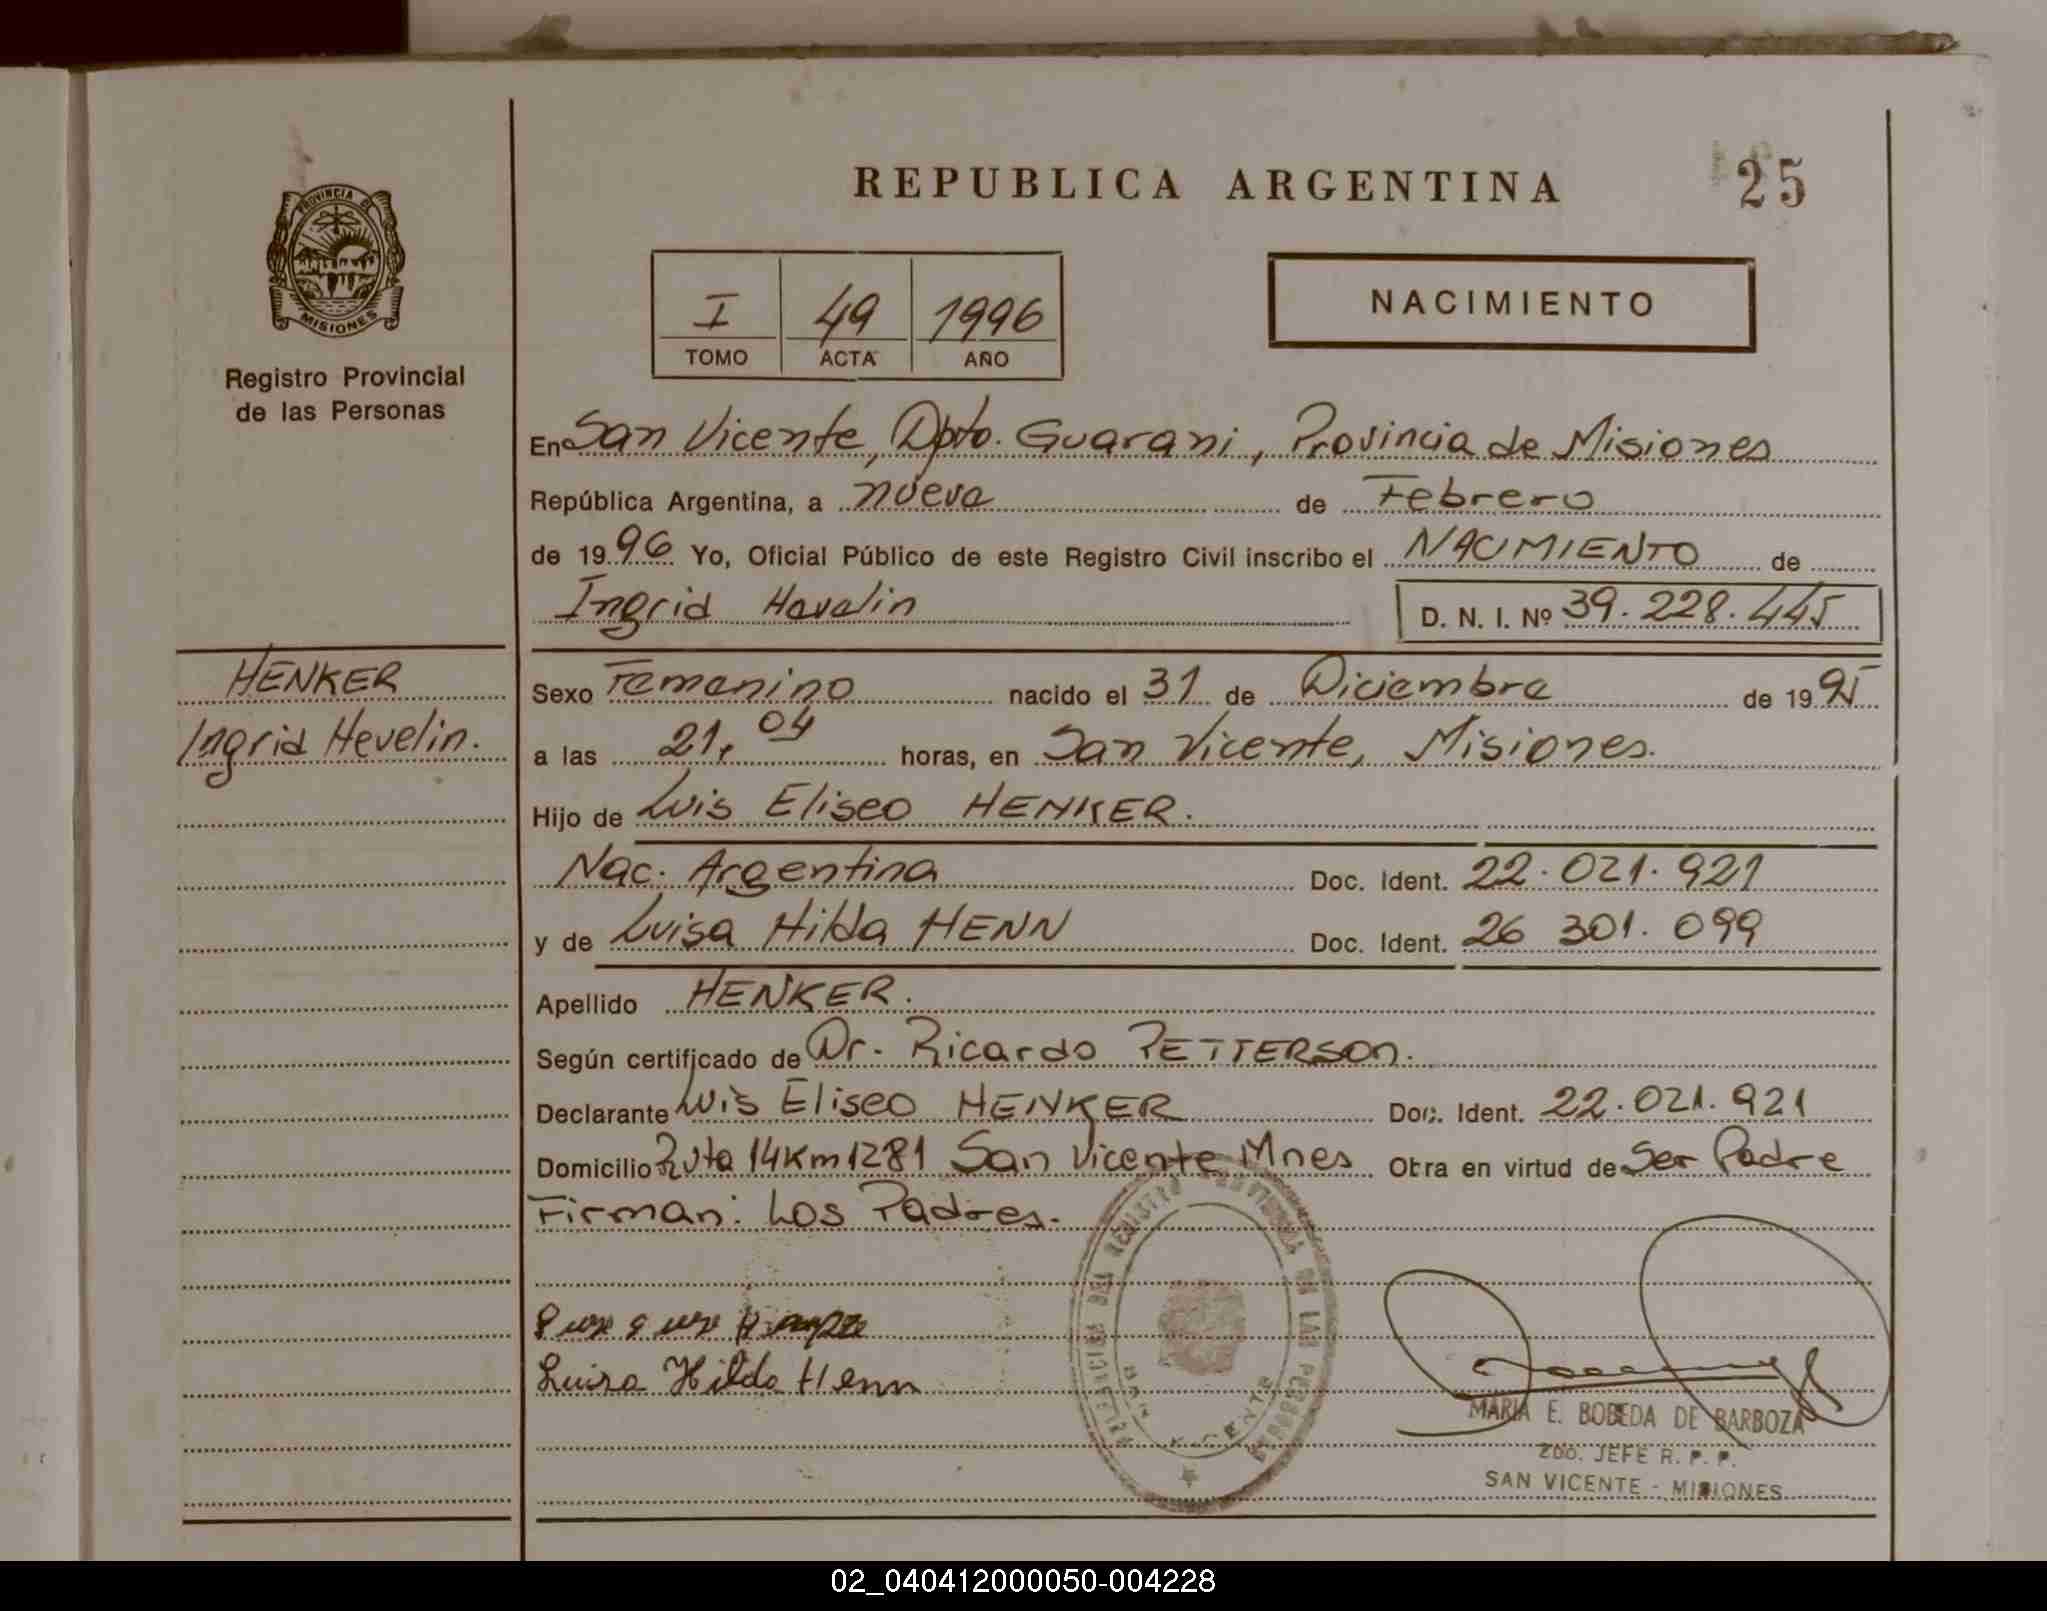 REPUBLICA ARGENTINA
25
PROVINCIA DE
MISIONES
Registro Provincial
de las Personas
I 49 1996
TOMO ACTA AÑO
NACIMIENTO
En San Vicente, Dpto. Guarani, Provincia de Misiones
República Argentina, a nueve de Febrero
de 1996 Yo, Oficial Público de este Registro Civil inscribo el NACIMIENTO de
Ingrid Hevelin D. N. I. Nº 39.228.445
HENKER
Ingrid Hevelin.
Sexo Femenino nacido el 31 de Diciembre de 1995
a las 21,04 horas, en San Vicente, Misiones.
Hijo de Luis Eliseo HENKER.
Nac. Argentina Doc. Ident. 22.021.921
y de Luisa Hilda HENN Doc. Ident. 26 301.099
Apellido HENKER.
Según certificado de Dr. Ricardo PETTERSON.
Declarante Luis Eliseo HENKER Doc. Ident. 22.021.921
Domicilio Ruta 14 Km 1281 San Vicente Mnes Obra en virtud de Ser Padre
Firman: Los Padres.
Luisa Hilda Henn
DEL REGISTRO PROVINCIAL DE LAS PERSONAS
SAN VICENTE
MARIA E. BOBEDA DE BARBOZA
2DO. JEFE R. P. P.
SAN VICENTE - MISIONES
02_040412000050-004228